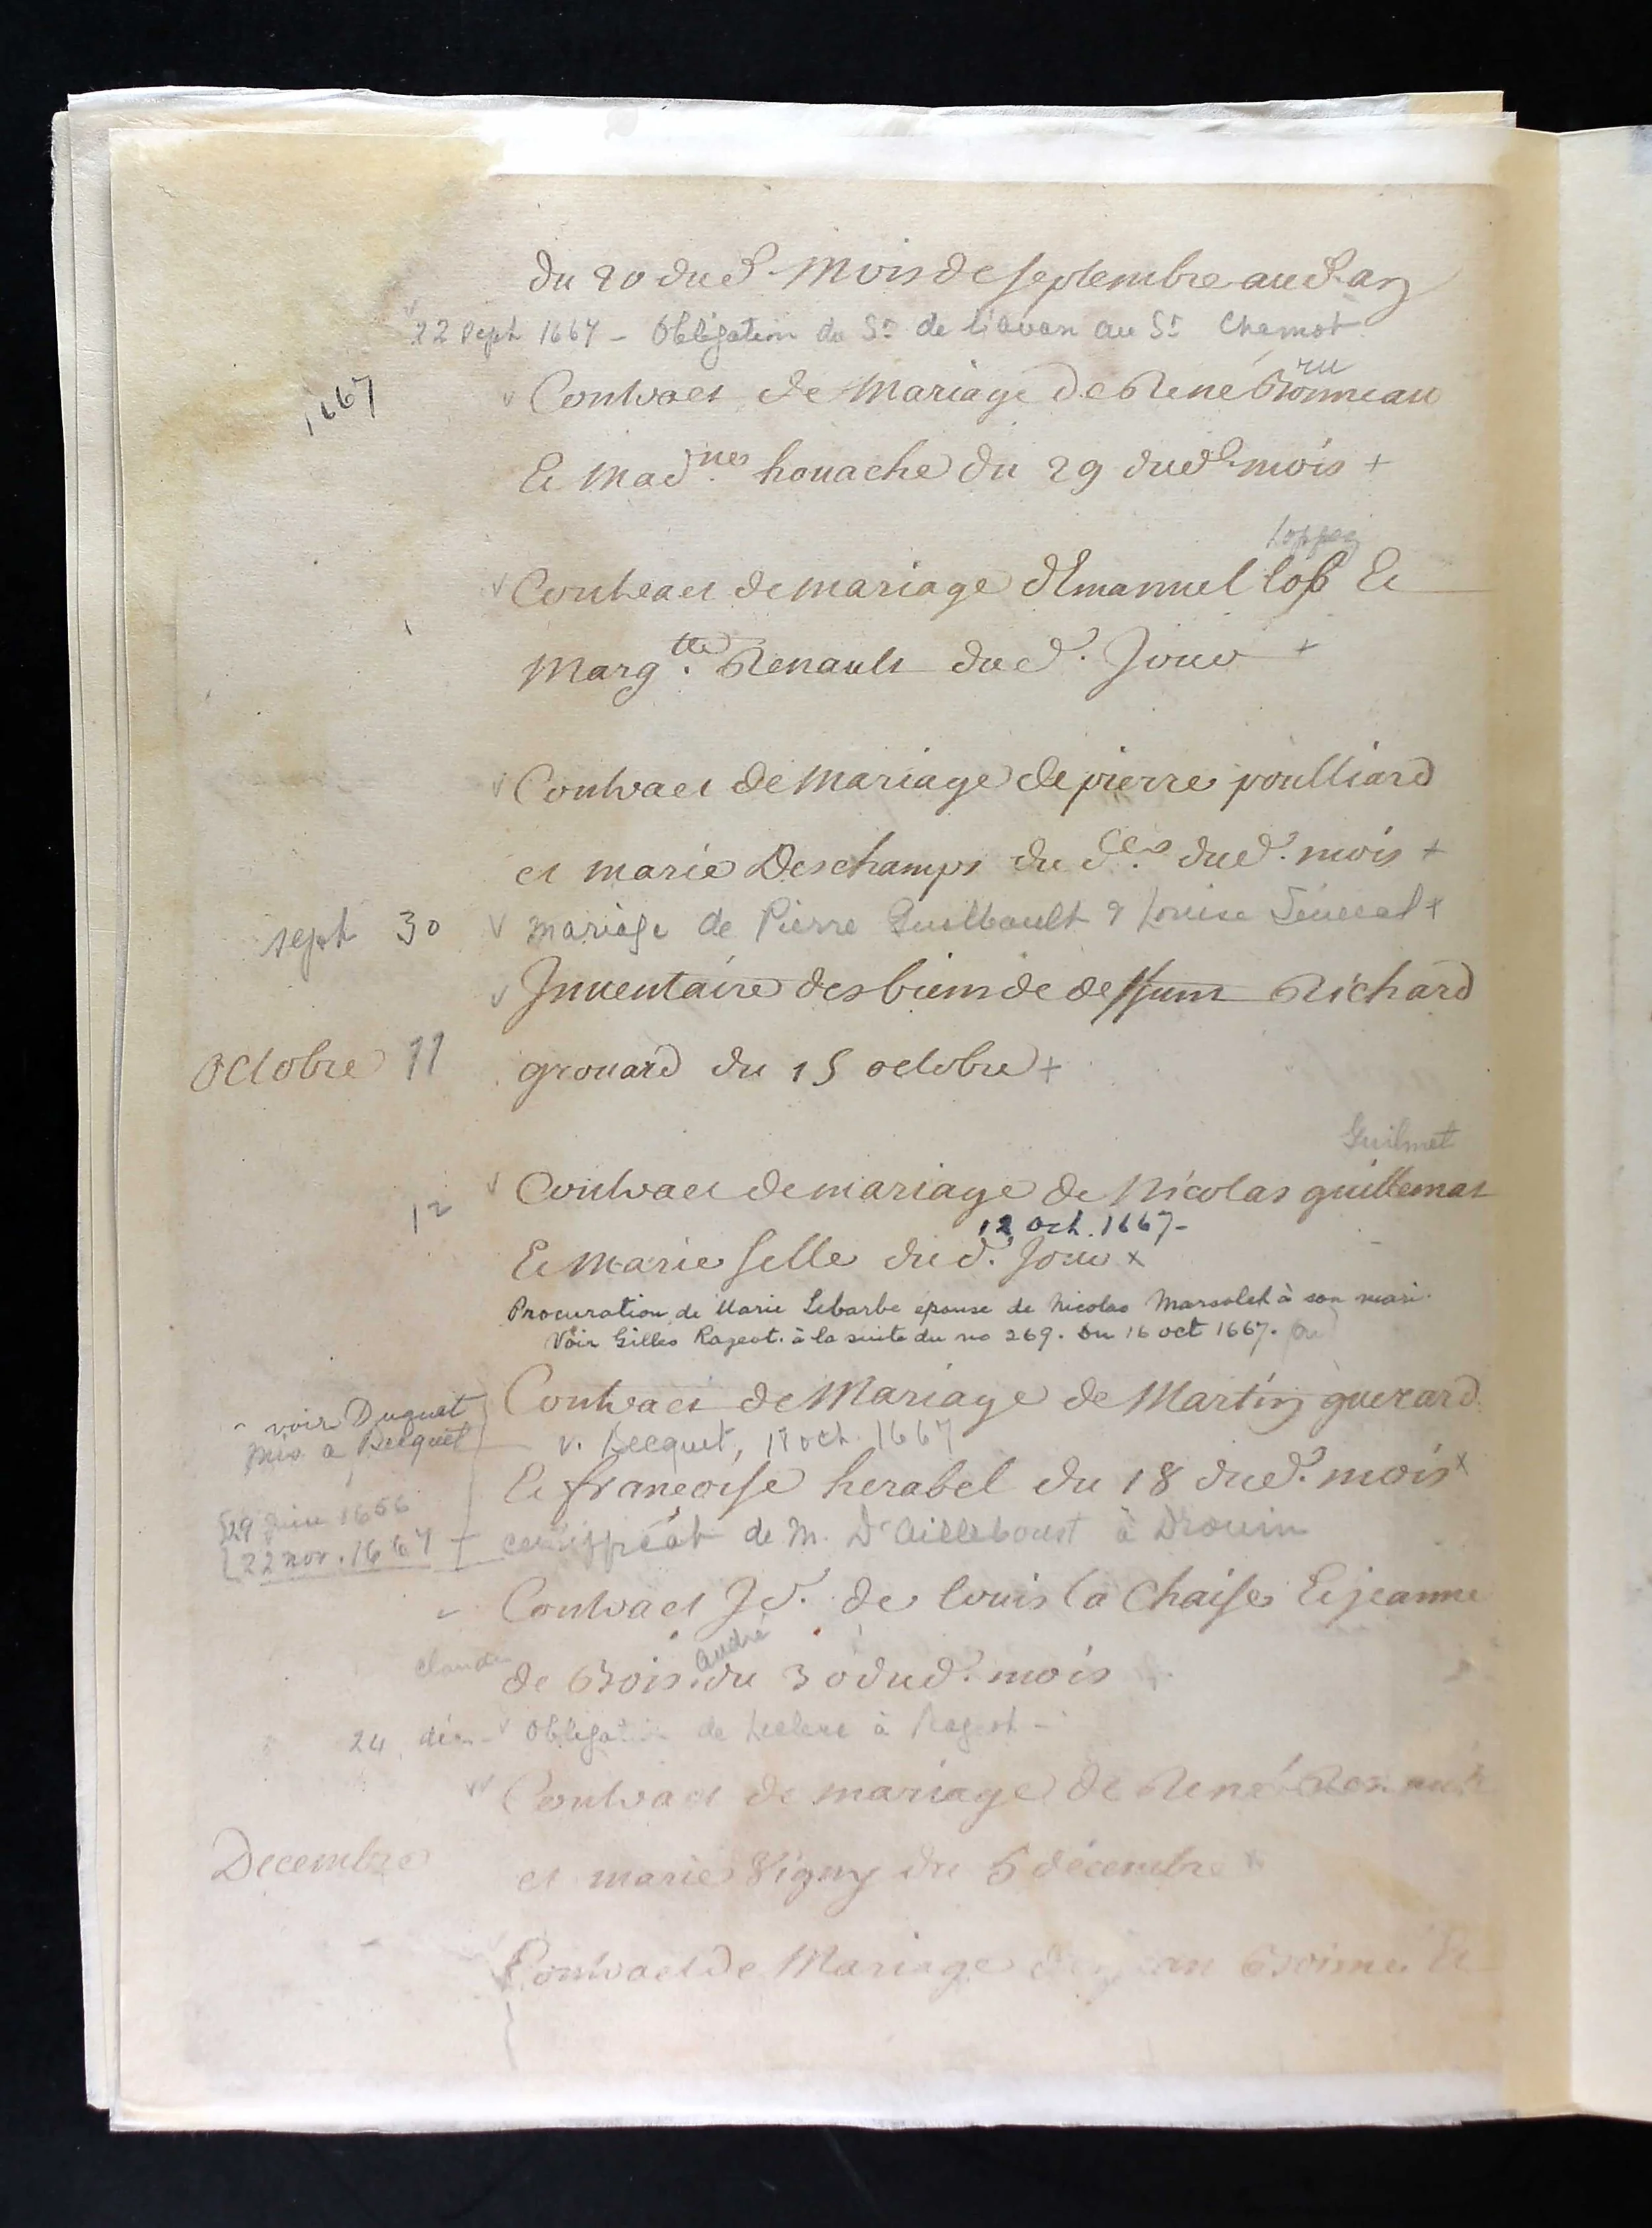 du 20 dud. Mois de septembre aud. an
22 Sept 1667 - Obligation du Sr de au Sr Chamot
1667
ru
Contract de Mariage de René Bonneau
Et Mad.nes houache du 29 dud. mois +
Loppez
Contract de mariage d'Emanuel lop Et
Marg.tte Renault dud. Jour +
Contract de Mariage de pierre poulliard
et marie Deschamps du d.er dud. mois +
sept 30 mariage de Pierre Guilbault & Louise Senecal +
Inventaire des biens de deffunt Richard
Octobre 11 grouard du 15 octobre +
Guilmet
12 Contract de mariage de Nicolas guillemat
12 Oct. 1667 -
Et Marie selle dud. Jour x
Procuration de Marie Lebarbe épouse de Nicolas Marsolet à son mari.
Voir Gilles Rageot. à la suite du no 269. Du 16 oct 1667.
Contract de Mariage de Martin guerard
- voir Duquet
mis a Becquet
v. Becquet, 18 oct. 1667
Et françoise herabel du 18 dud. mois x
29 Juin 1656
22 nov. 1667 certifficat de M. D'Ailleboust à Drouin
Contract Jd. de louis la Chaise Et jeanne
André
Claude
de Bois du 30 dud. mois
24 déc - Obligation de Leclerc à Rageot -
Contract de mariage de René Renault
Decembre et marie Vigny du 5 décembre x
Contract de Mariage de jean Et